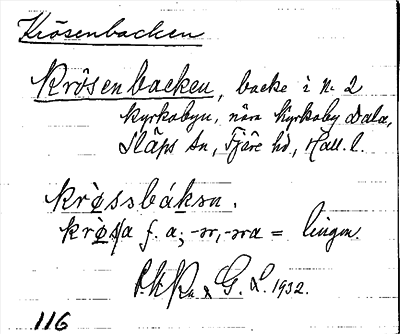 Krösenbacken
Krösenbacken, backe i N. 2
Kyrkobyn, nära Kyrkoby Dala,
Släps sn, Fjäre hd, Hall. l.
krø̀ssbáksn.
krø̀sa f. a; -ər, -əra = lingon.
G. L. 1932.
116